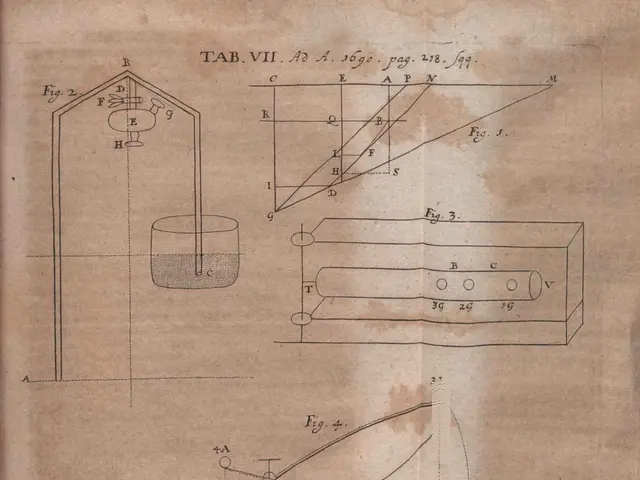 TAB. VII. Ad A. 1690. pag. 218. sqq.
Fig. 2.
B
D
F
G
E
H
C
A
C E A P N M
R Q B
Fig. 1.
L F
H S
I D
G
Fig. 3.
B C
T V
3G 2G 1G
Fig. 4.
4A